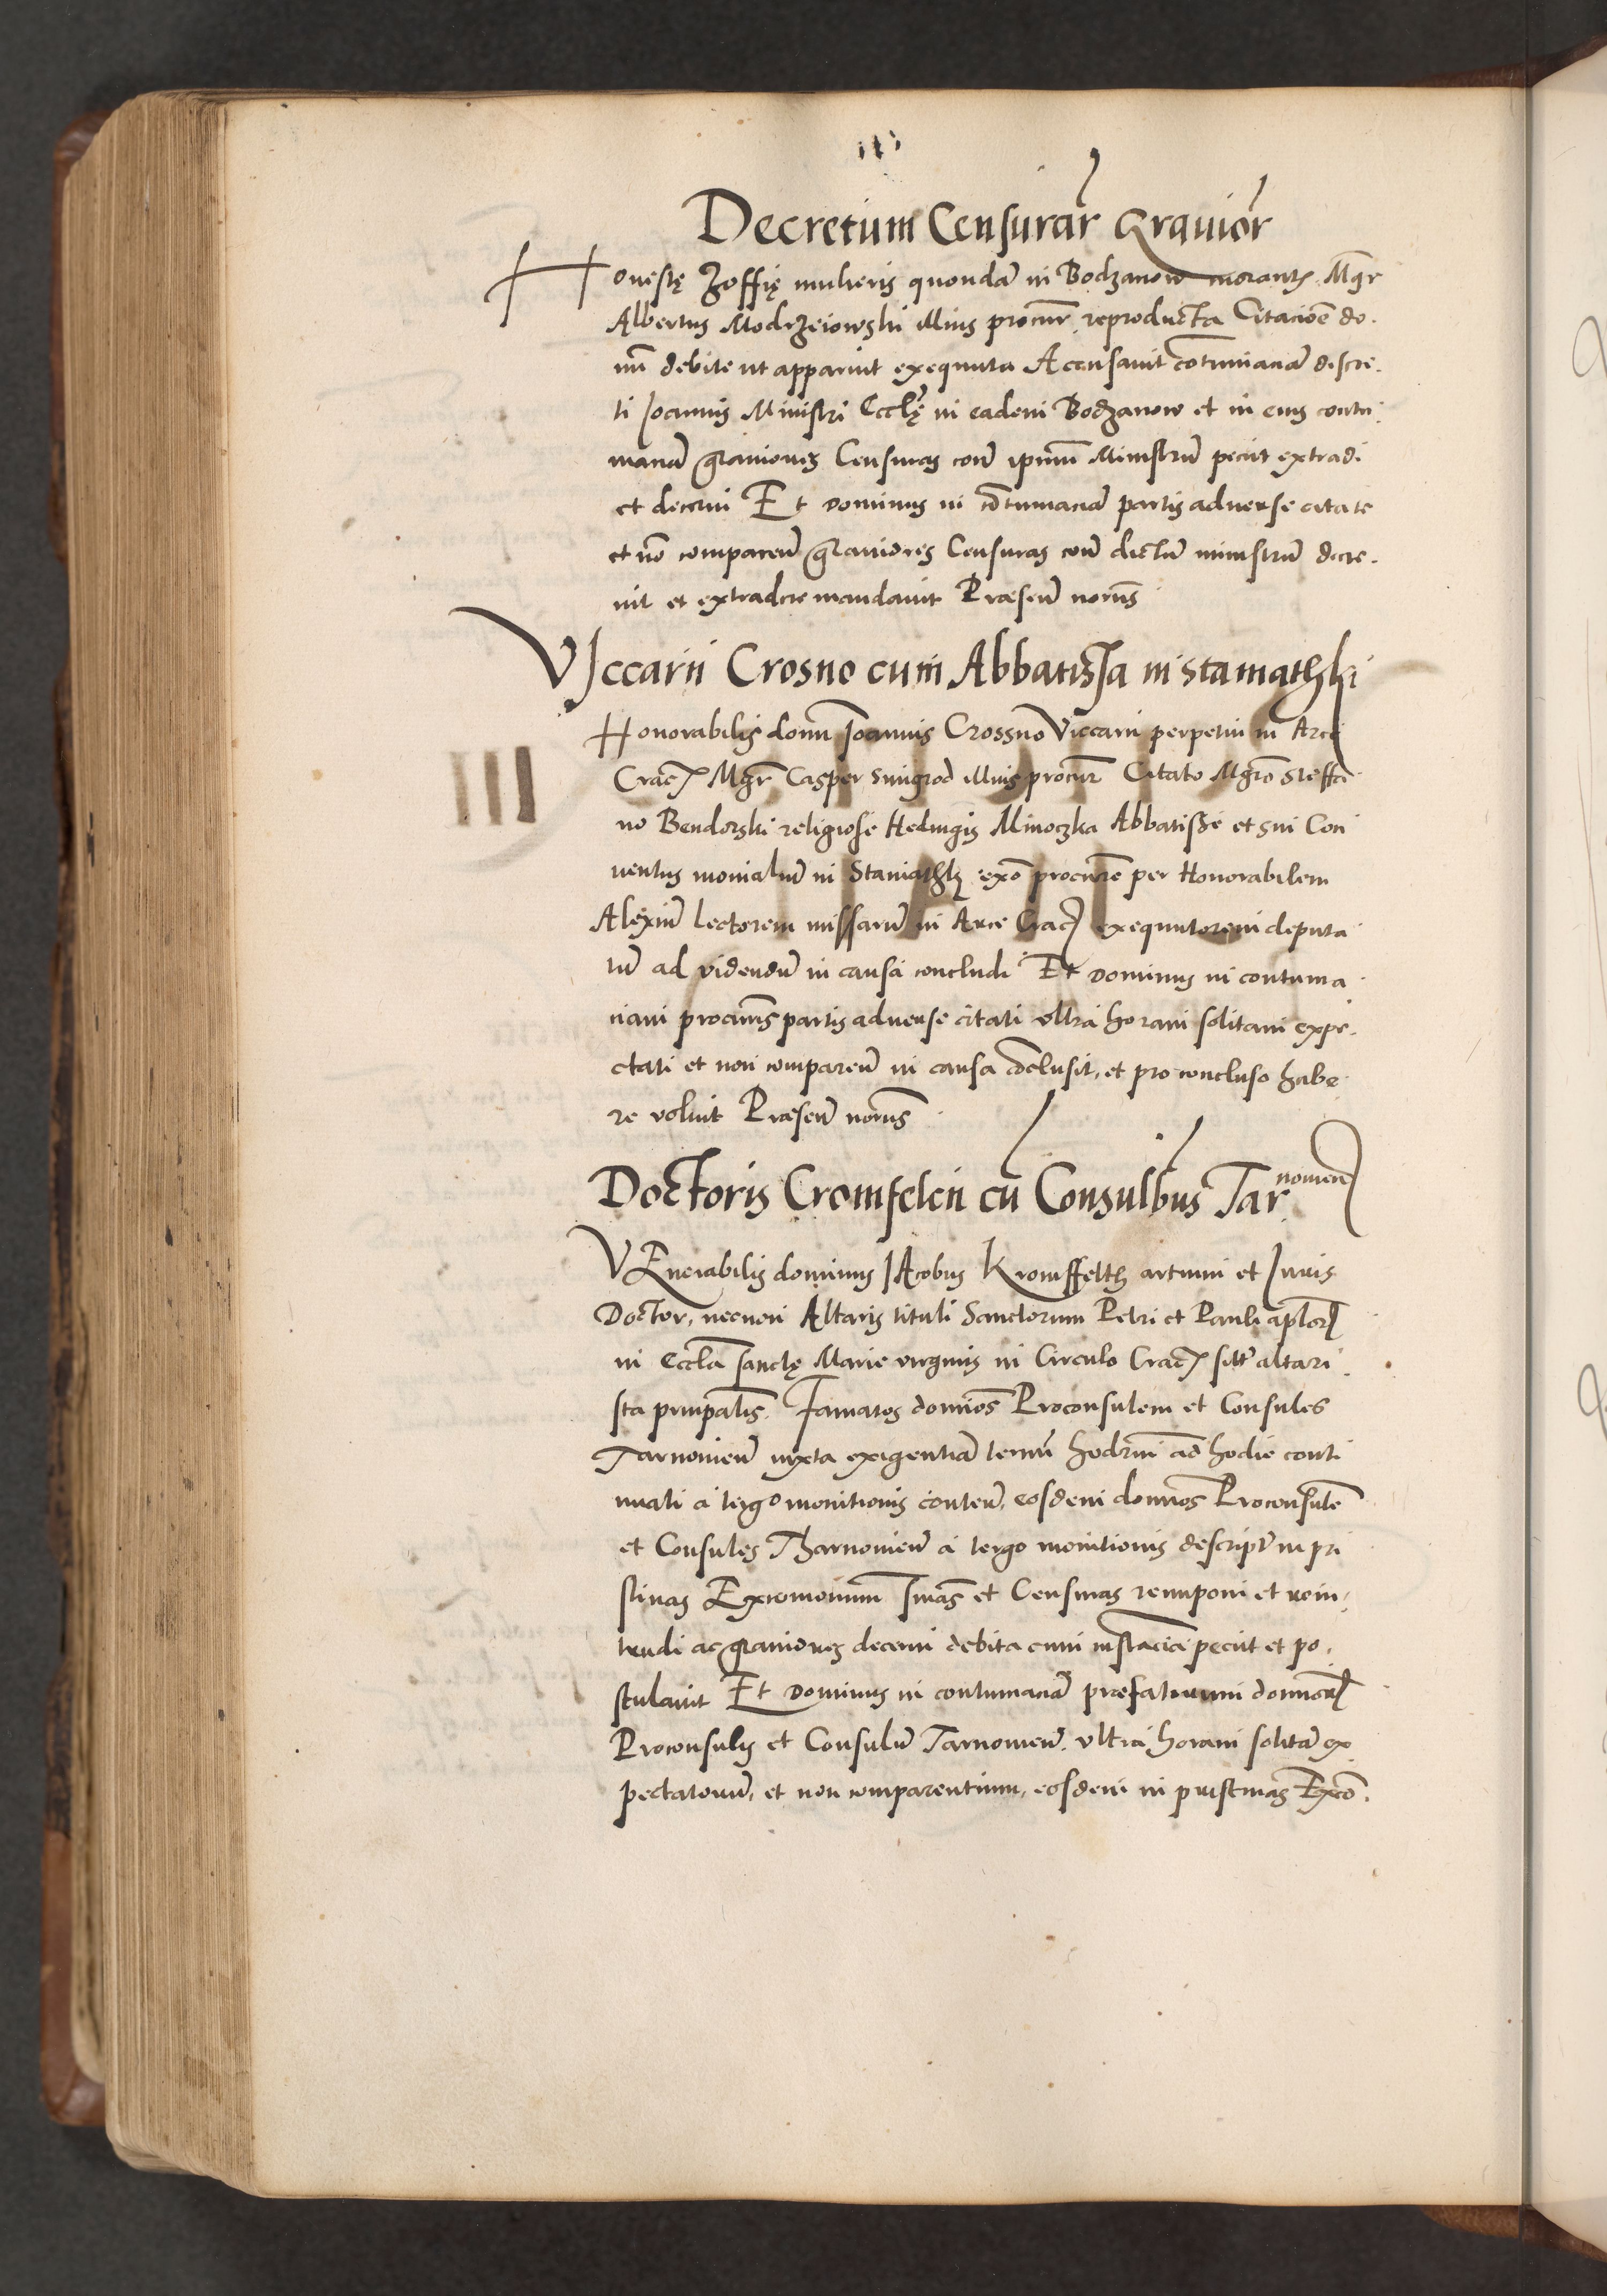 Decretum Censurar̄ Gravior̄
Honestę Zoffię mulieris quondā in Bodzanow morantꝭ Mgr̄
Albertus Modrzeiowski illius procur̄ reproducta Citacioē do.
nū debite ut apparuit exequuta Accusavit cōtumaciā discre.
ti Joannis Ministri Ecclę̄ in eadem Bodzanow et in eius contu
maciā graviores Censuras con̄ ipsum Ministrū peciit extradi
et decerni Et Dominus in cōtumaciā partis adverse citate
et nō comparen̄ graviores Censuras con̄ dictū ministrū decre.
vit et extradere mandavit Præsen̄ notīs
VIccarii Crosno cum Abbatissa in Staniathki
Honorabilis domī Joannis Crossno Viccarii perpetui in Arce
Cracꝭ Mgr̄ Casper Smigrod illius procur̄ Citato Mgrō Steffa
no Bendorski religiose Hedvigis Minoczka Abbatisse et sui Con
ventus monialiū in Staniathkꝭ exō procurē per Honorabilem
Alexiū Lectorem missarū in Arce Cracꝭ exequutorem deputa
tū ad videndū in causa concludi Et Dominus in contuma
ciam procurīs partis adverse citati ultra horam solitam expe.
ctati et non comparen̄ in causa cōclusit, et pro concluso habe
re voluit Præsen̄ notīs
Doctoris Cromfelth cū Consulbus Tarnovien̄
VEnerabilis dominus JAcobus Kromffelth artium et Juris
Doctor, necnon Altaris tituli Sanctorum Petri et Pauli aplōrꝭ
in Eccla sanctę Marie virginis in Circulo Cracꝭ siti altari
sta prinpalīs. Famatos domīos Proconsulem et Consules
Tarnovien̄ iuxta exigentiā termī hodrnī ad hodie conti
nuati a tergo monitionis conten̄, eosdem domīos Proconsulē
et Consules Tharnovien̄ a tergo monitionis descript̄ in pri
stinas Excomonnum sn̄ias et Censuras reimponi et rein,
trudi ac graviores decerni debita cum instācia peciit et po.
stulavit Et Dominus in contumaciā præfatorum domīorꝭ
Proconsulis et Consulū Tarnovien̄. ultra horam solitā ex
pectatorū, et non comparentium, eosdem in pristinas Excō.